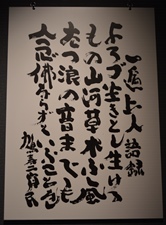 一遍上人 語録
よろづ生きとし生けるもの
山河草木ふく風
たつ浪の音までも
念佛ならずといふことなし